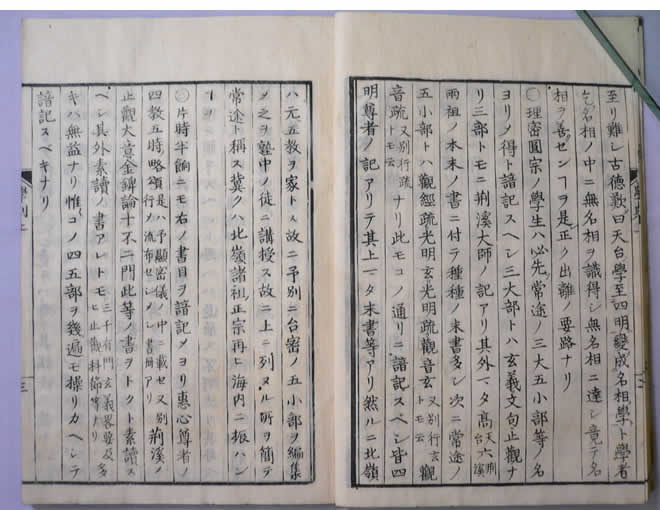 至リ難シ古德歎曰天台學至四明變成名相學ト學者
乞名相ノ中ニ無名相ヲ識得シ無名相ニ達シ竟テ名
相ヲ善センヿヲ是正ク出離ノ要路ナリ
○理密圓宗ノ學生ハ必先ツ常途ノ三大五小部等ノ名
ヨリメ得ト諳記スヘシ三大部トハ玄義文句止觀ナ
リ三部トモニ荊溪大師ノ記アリ其外マタ高
兩祖ノ本末ノ書ニ付テ種種ノ末書多シ次ニ常途ノ
五小部トハ觀經疏光明玄光明疏觀音玄又別行玄トモ云觀
音疏又別行疏トモ云ナリ此モコノ通リニ諳記スベシ皆四
明尊者ノ記アリテ其上マタ末書等アリ然ルニ北嶺
ハ元五教ヲ家トス故ニ予別ニ台密ノ五小部ヲ編集
メ之ヲ塾中ノ徒ニ講授ス故ニ上ニ列ヌル研ヲ簡テ
常途ト稱ス冀クハ北嶺諸祖正宗再ヒ海内ニ振ハン
○片時半餉ニモ右ノ書目ヲ諳記メヨリ惠心尊者ノ
四教五時略頌是ハ予顯密儀ノ中ニ載セ又別行メ流布セシメシ書アリ荊溪ノ
止觀大意金錍論十不二門此等ノ書ヲトクト素讀ス
ベシ其外素讀ノ書アレトモ三千有門玄義畧要及ヒ止觀科節等ナリ多
キハ無益ナリ惟コノ四五部ヲ幾遍モ操リカヘシテ
諳記スベキナリ